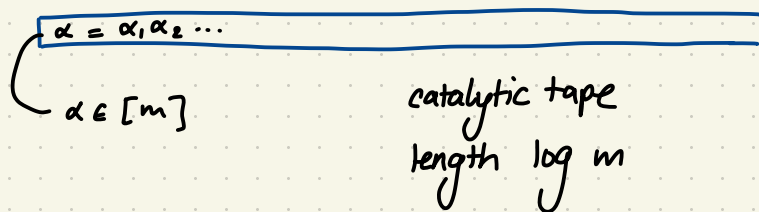 α = α₁ α₂ ...
α ∈ [m]
catalytic tape
length log m